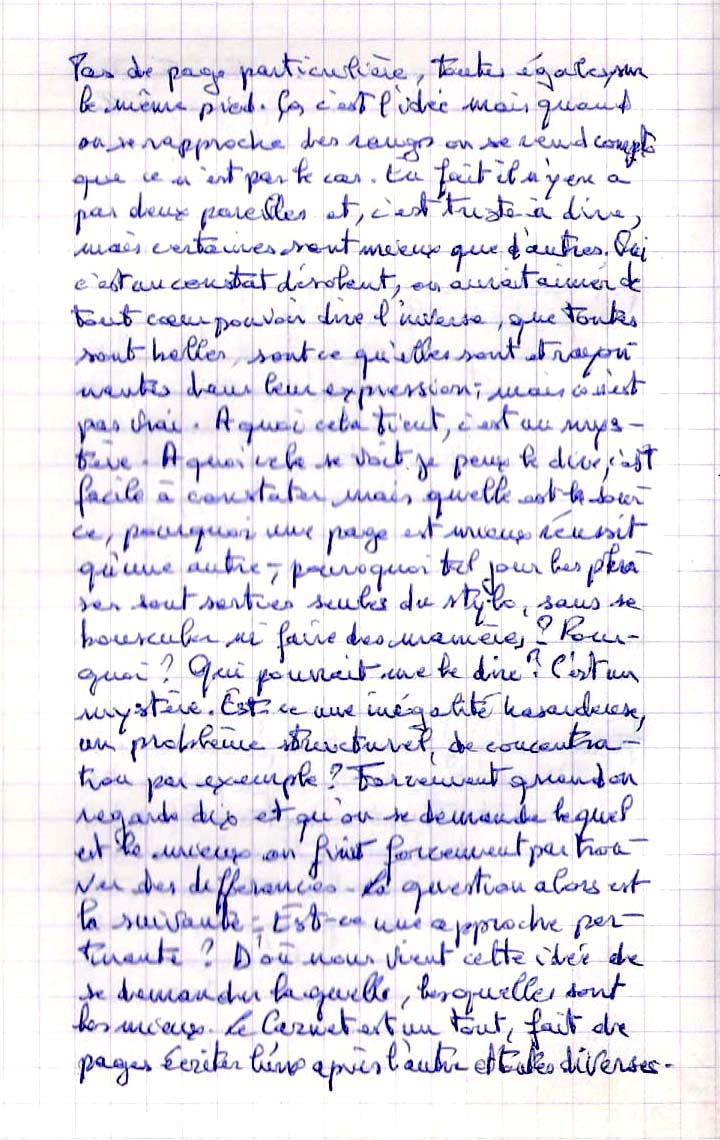 Pas de page particulière, toutes égales, sur
le même pied. Ça c'est l'idée mais quand
on se rapproche des rangs on se rend compte
que ce n'est pas le cas. En fait il n'y en a
pas deux pareilles et, c'est triste à dire,
mais certaines sont mieux que d'autres. Oui
c'est un constat désolant, on aurait aimé de
tout cœur pouvoir dire l'inverse, que toutes
sont belles, sont ce qu'elles sont et rayon-
nantes dans leur expression, mais ce n'est
pas vrai. A quoi cela tient, c'est un mys-
tère. A quoi cela se voit je peux le dire, c'est
facile à constater mais quelle est la sour-
ce, pourquoi une page est mieux réussit
qu'une autre, pourquoi tel jour les phra-
ses sont sorties seules du stylo, sans se
bousculer ni faire des manières ? Pour-
quoi ? Qui pourrait me le dire ? C'est un
mystère. Est-ce une inégalité hasardeuse,
un problème structurel, de concentra-
tion par exemple ? Forcement quand on
regarde dix et qu'on se demande lequel
est le mieux on finit forcement par trou-
ver des differences. La question alors est
la suivante : Est-ce une approche per-
tinente ? D'où nous vient cette idée de
se demander laquelle, lesquelles sont
les mieux. Le Carnet est un tout, fait de
pages écrites l'une après l'autre et toutes diverses.